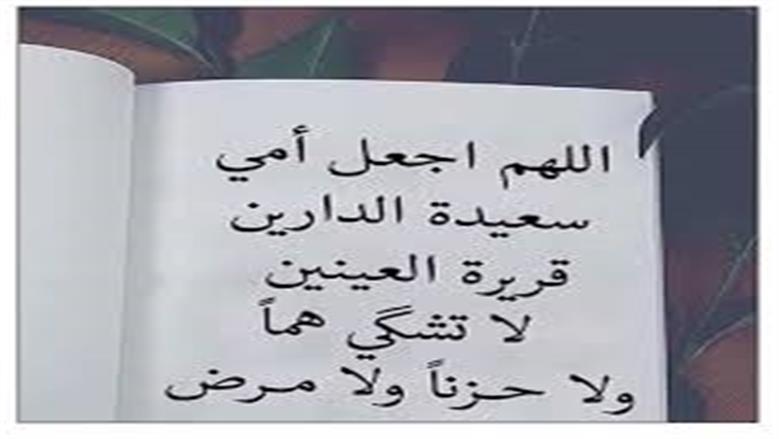 اللهم اجعل أمي
سعيدة الدارين
قريرة العينين
لا تشگي هماً
ولا حـزناً ولا مـرض